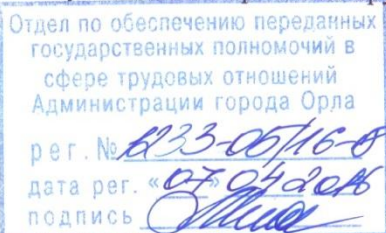 Отдел по обеспечению переданных
государственных полномочий в
сфере трудовых отношений
Администрации города Орла
рег. №
дата рег. «07» 04 2016
подпись